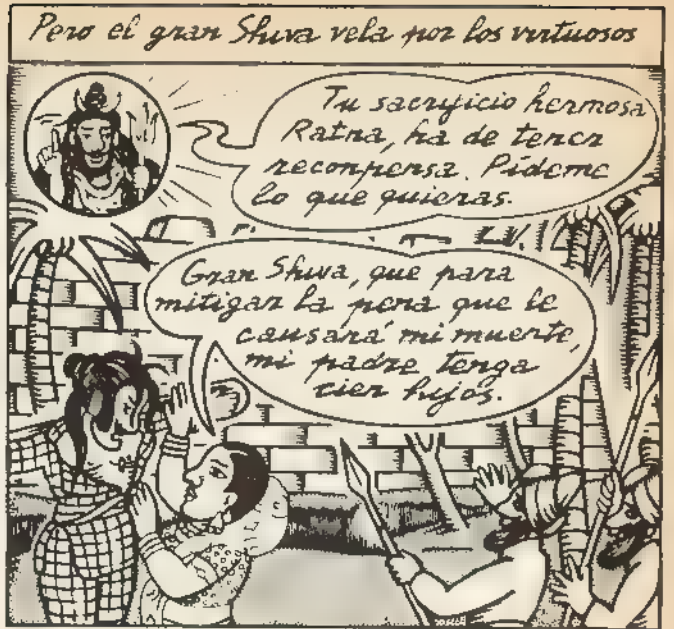 Pero el gran Shiva vela por los virtuosos
Tu sacrificio hermosa
Ratna, ha de tener
recompensa. Pídeme
lo que quieras.
Gran Shiva, que para
mitigar la pena que le
causará mi muerte,
mi padre tenga
cien hijos.